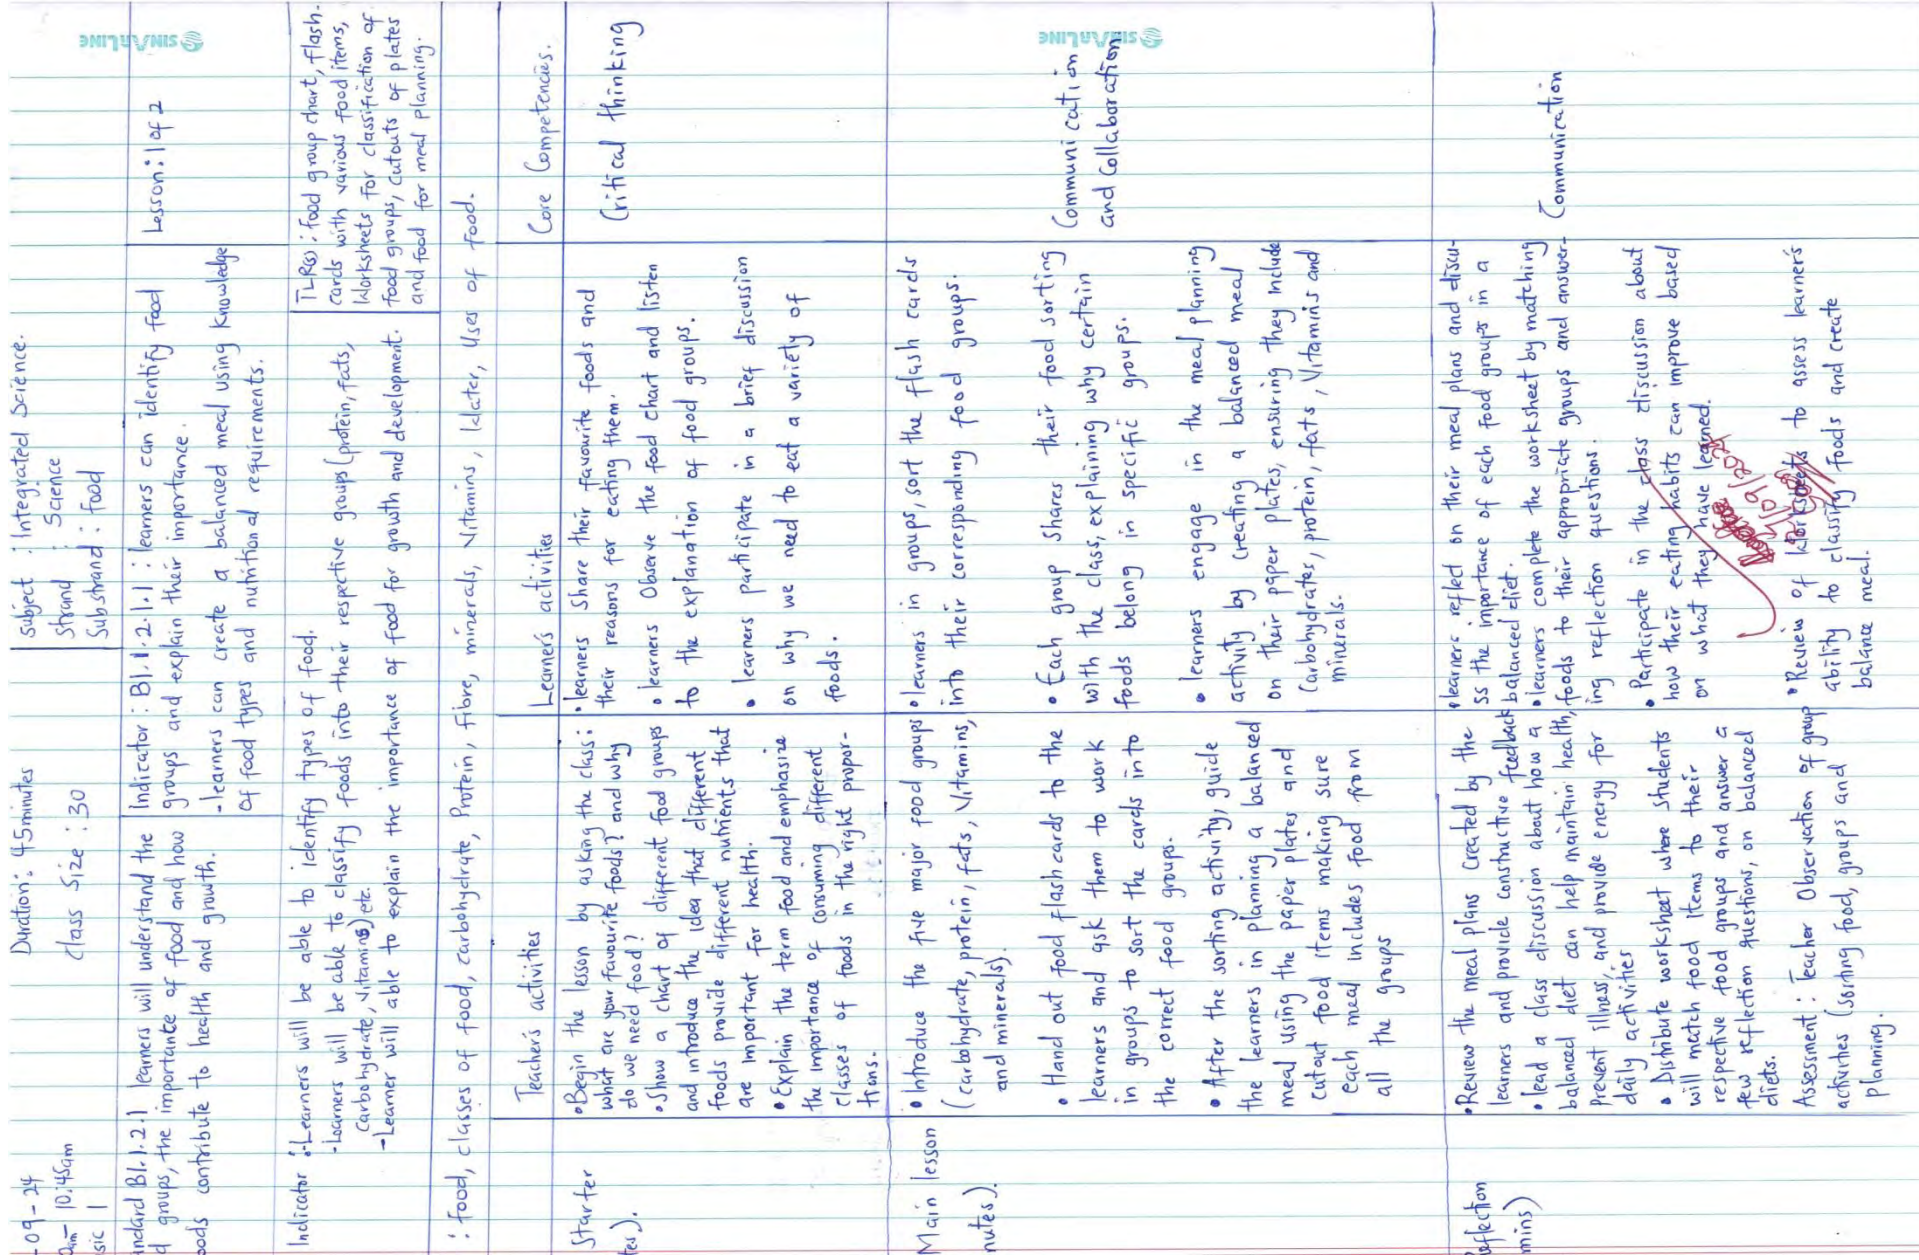 -09-24
Duration: 45minutes
Subject : Integrated Science.
am- 10:45am
Class Size : 30
Strand : Science
sic 1
Substrand : Food
ndard B1.1.2.1 learners will understand the
d groups, the importance of food and how
oods contribute to health and growth.
Indicator : B1.1.2.1.1 : learners can identify food
groups and explain their importance.
- learners can create a balanced meal using knowledge
of food types and nutritional requirements.
Lesson: 1 of 2
Indicator :- Learners will be able to identify types of food.
- Learners will be able to classify foods into their respective groups (protein, fats,
carbohydrate, vitamins) etc.
- Learner will able to explain the importance of food for growth and development.
TLR(s) : Food group chart, flash-
cards with various food items,
Worksheets for classification of
food groups, cutouts of plates
and food for meal planning.
: food, classes of food, carbohydrate, Protein, Fibre, minerals, Vitamins, Water, Uses of food.
Teacher's activities
Learners activities
Core Competencies.
Starter
tes).
• Begin the lesson by asking the class:
what are your favourite foods? and why
do we need food?
• Show a chart of different food groups
and introduce the idea that different
foods provide different nutrients that
are important for health.
• Explain the term food and emphasize
the importance of consuming different
classes of foods in the right propor-
tions.
• learners Share their favourite foods and
their reasons for eating them.
• learners Observe the food chart and listen
to the explanation of food groups.
• learners participate in a brief discussion
on why we need to eat a variety of
foods.
Critical thinking
Main lesson
nutes).
• Introduce the five major food groups
(carbohydrate, protein, fats, Vitamins,
and minerals).
• Hand out food flash cards to the
learners and ask them to work
in groups to sort the cards into
the correct food groups.
• After the sorting activity, guide
the learners in planning a balanced
meal using the paper plates and
cutout food items making sure
each meal includes food from
all the groups
• learners in groups, sort the flash cards
into their corresponding food groups.
• Each group Shares their food sorting
with the class, explaining why certain
foods belong in specific groups.
• learners engage in the meal planning
activity by creating a balanced meal
on their paper plates, ensuring they include
Carbohydrates, protein, fats, Vitamins and
minerals.
Communication
and Collaboration
eflection
mins)
• Review the meal plans created by the
learners and provide constructive feedback
• lead a class discussion about how a
balanced diet can help maintain health,
prevent illness, and provide energy for
daily activities
• Distribute worksheet where students
will match food items to their
respective food groups and answer a
few reflection questions, on balanced
diets.
Assessment : Teacher Observation of group
activities (sorting food, groups and
planning.
• learners reflect on their meal plans and discu-
ss the importance of each food groups in a
balanced diet.
• learners complete the worksheet by matching
foods to their appropriate groups and answer-
ing reflection questions.
• Participate in the class discussion about
how their eating habits can improve based
on what they have learned.
• Review of worksheets to assess learner's
ability to classify foods and create
balance meal.
Communication
SINARLINE
SINARLINE